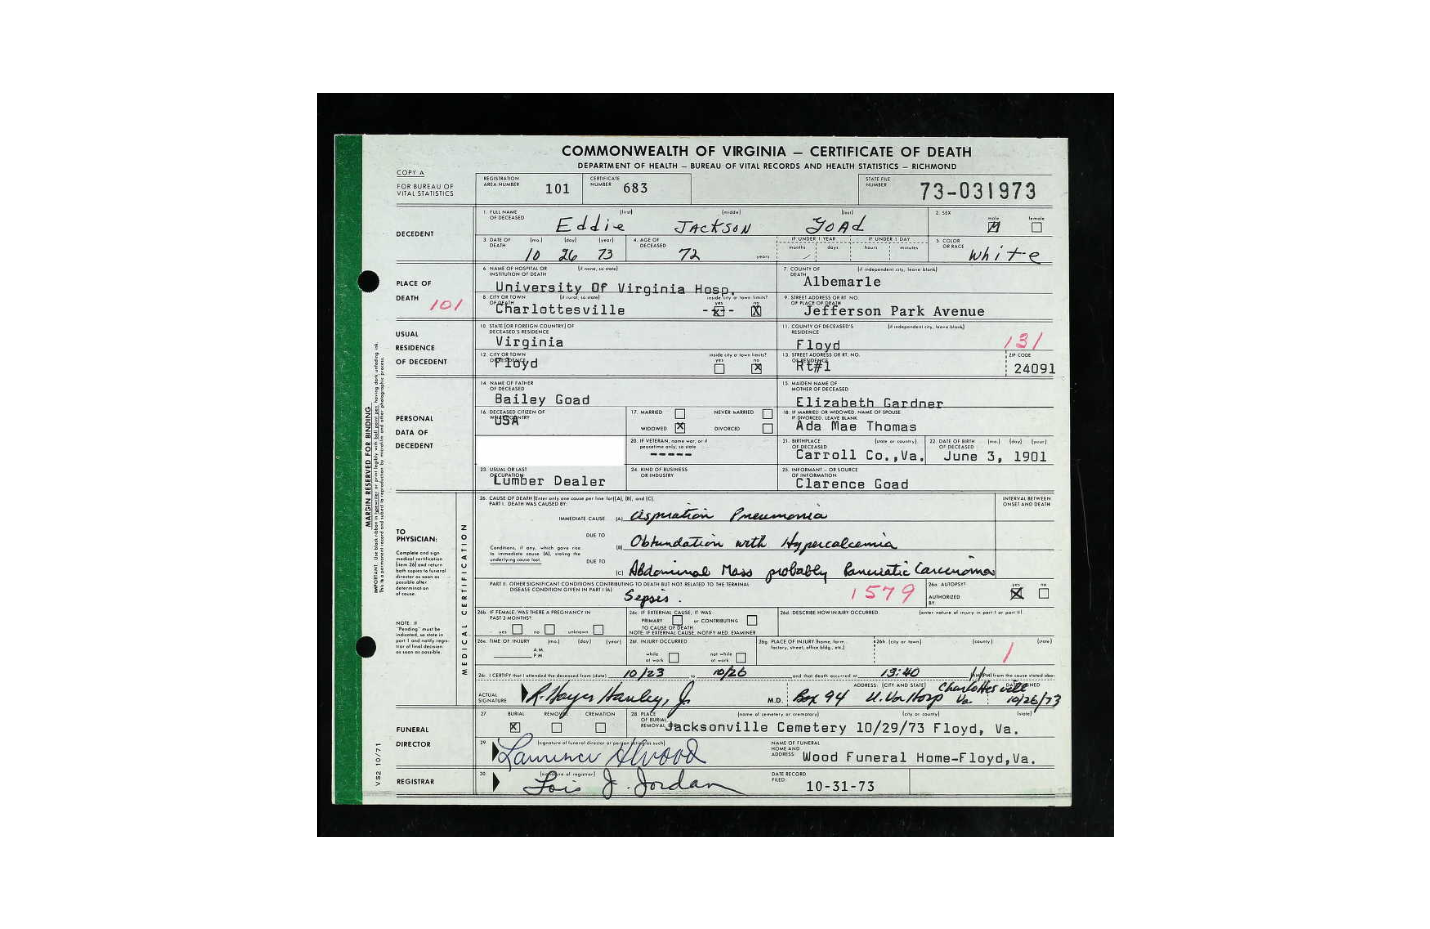 COMMONWEALTH OF VIRGINIA — CERTIFICATE OF DEATH
DEPARTMENT OF HEALTH — BUREAU OF VITAL RECORDS AND HEALTH STATISTICS — RICHMOND
COPY A
FOR BUREAU OF VITAL STATISTICS
REGISTRATION AREA NUMBER 101 CERTIFICATE NUMBER 683 STATE FILE NUMBER 73-031973
DECEDENT
1. FULL NAME OF DECEASED (first) (middle) (last) 2. SEX male female
Eddie Jackson Goad
3. DATE OF DEATH (mo.) (day) (year) 4. AGE OF DECEASED IF UNDER 1 YEAR IF UNDER 1 DAY 5. COLOR OR RACE
months days hours minutes
10 26 73 72 years white
PLACE OF DEATH 101
6. NAME OF HOSPITAL OR INSTITUTION OF DEATH (if none, so state) 7. COUNTY OF DEATH (if independent city, leave blank)
University Of Virginia Hosp. Albemarle
8. CITY OR TOWN OF DEATH (if rural, so state) inside city or town limits? yes no 9. STREET ADDRESS OR RT. NO. OF PLACE OF DEATH
Charlottesville X Jefferson Park Avenue
USUAL RESIDENCE OF DECEDENT
10. STATE (OR FOREIGN COUNTRY) OF DECEASED'S RESIDENCE 11. COUNTY OF DECEASED'S RESIDENCE (if independent city, leave blank)
Virginia Floyd 131
12. CITY OR TOWN OF RESIDENCE inside city or town limits? yes no 13. STREET ADDRESS OR RT. NO. OF RESIDENCE ZIP CODE
Floyd X Rt#1 24091
PERSONAL DATA OF DECEDENT
14. NAME OF FATHER OF DECEASED 15. MAIDEN NAME OF MOTHER OF DECEASED
Bailey Goad Elizabeth Gardner
16. DECEASED CITIZEN OF WHAT COUNTRY 17. MARRIED NEVER MARRIED 18. IF MARRIED OR WIDOWED, NAME OF SPOUSE IF DIVORCED, LEAVE BLANK
USA WIDOWED X DIVORCED Ada Mae Thomas
20. IF VETERAN, name war, or if peacetime only, so state 21. BIRTHPLACE OF DECEASED (state or country) 22. DATE OF BIRTH OF DECEASED (mo.) (day) (year)
----- Carroll Co.,Va. June 3, 1901
23. USUAL OR LAST OCCUPATION 24. KIND OF BUSINESS OR INDUSTRY 25. INFORMANT — OR SOURCE OF INFORMATION
Lumber Dealer Clarence Goad
MARGIN RESERVED FOR BINDING
TO PHYSICIAN:
Complete and sign medical certification (item 26) and return both copies to funeral director as soon as possible after determination of cause.
NOTE: If "Pending" must be indicated, so state in part I and notify registrar of final decision as soon as possible.
MEDICAL CERTIFICATION
26. CAUSE OF DEATH (Enter only one cause per line for (A), (B), and (C). INTERVAL BETWEEN ONSET AND DEATH
PART I. DEATH WAS CAUSED BY:
IMMEDIATE CAUSE (A) Aspiration Pneumonia
DUE TO
Conditions, if any, which gave rise to immediate cause (A), stating the underlying cause last.
(B) Obtundation with Hypercalcemia
DUE TO
(C) Abdominal Mass probably Pancreatic Carcinoma
PART II. OTHER SIGNIFICANT CONDITIONS CONTRIBUTING TO DEATH BUT NOT RELATED TO THE TERMINAL DISEASE CONDITION GIVEN IN PART I (A)
Sepsis. 1579
26a. AUTOPSY? yes no
AUTHORIZED BY:
26b. IF FEMALE, WAS THERE A PREGNANCY IN PAST 3 MONTHS? yes no unknown
26c. IF EXTERNAL CAUSE, IT WAS PRIMARY or CONTRIBUTING TO CAUSE OF DEATH
NOTE: IF EXTERNAL CAUSE, NOTIFY MED. EXAMINER
26d. DESCRIBE HOW INJURY OCCURRED (enter nature of injury in part I or part II)
26e. TIME OF INJURY (mo.) (day) (year) A.M. P.M.
26f. INJURY OCCURRED while at work not while at work
26g. PLACE OF INJURY (home, farm, factory, street, office bldg., etc.)
26h. (city or town) (county) (state)
1
I CERTIFY that I attended the deceased from (date) 10/23 to 10/26 and that death occurred at 13:40
ADDRESS: (CITY AND STATE)
ACTUAL SIGNATURE R. Hayes Hanley, Jr M.D. Box 94 U. Va Hosp Charlottesville Va. 10/26/73
FUNERAL DIRECTOR
27. BURIAL X REMOVAL CREMATION 28. PLACE OF BURIAL, REMOVAL (name of cemetery or crematory) (city or county) (state)
Jacksonville Cemetery 10/29/73 Floyd, Va.
29. Laurence Wood
NAME OF FUNERAL HOME AND ADDRESS: Wood Funeral Home-Floyd,Va.
REGISTRAR
30. (signature of registrar) Lois J. Jordan
DATE RECORD FILED: 10-31-73
VS2 10/71